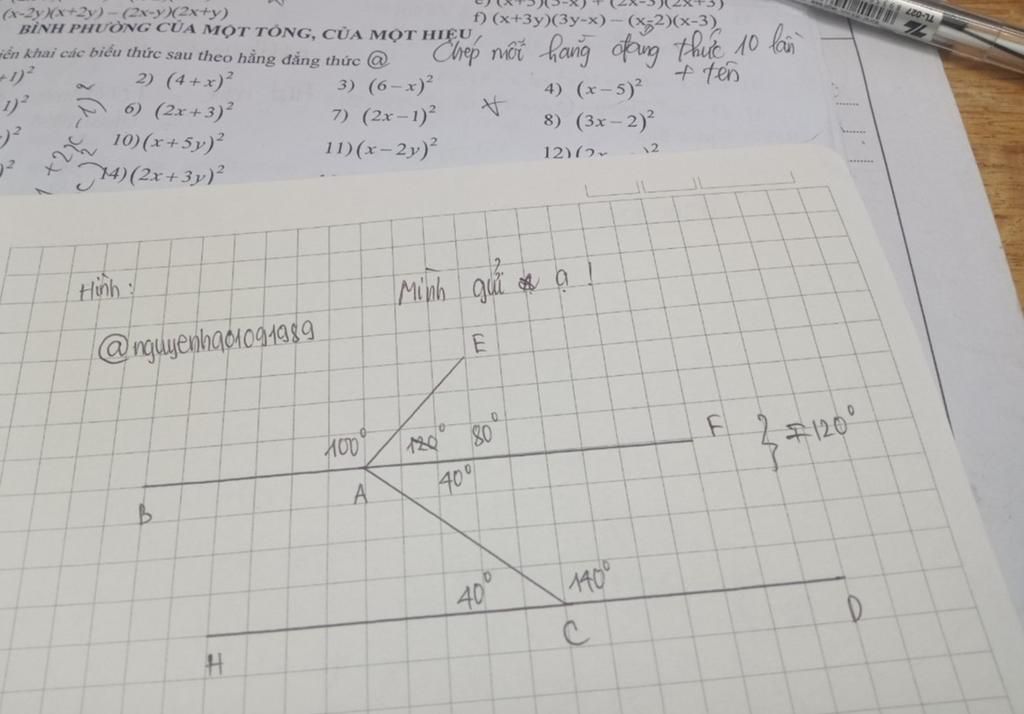 (x-2y)(x+2y) – (2x-y)(2x+y)
f) (x+3y)(3y-x) – (x-2)(x-3)
BÌNH PHƯƠNG CỦA MỘT TỔNG, CỦA MỘT HIỆU
khai các biểu thức sau theo hằng đẳng thức @
Chép mỗi hằng đẳng thức 10 lần
+ tên
+1)²
2) (4 + x)²
3) (6 – x)²
4) (x – 5)²
1)²
6) (2x + 3)²
7) (2x – 1)²
8) (3x – 2)²
)²
10) (x + 5y)²
11) (x – 2y)²
12)
)²
14) (2x + 3y)²
Hình:
Mình gửi ạ !
@nguyenhg01091989
E
100°
120°
80°
F
} = 120°
B
A
40°
40°
140°
H
C
D